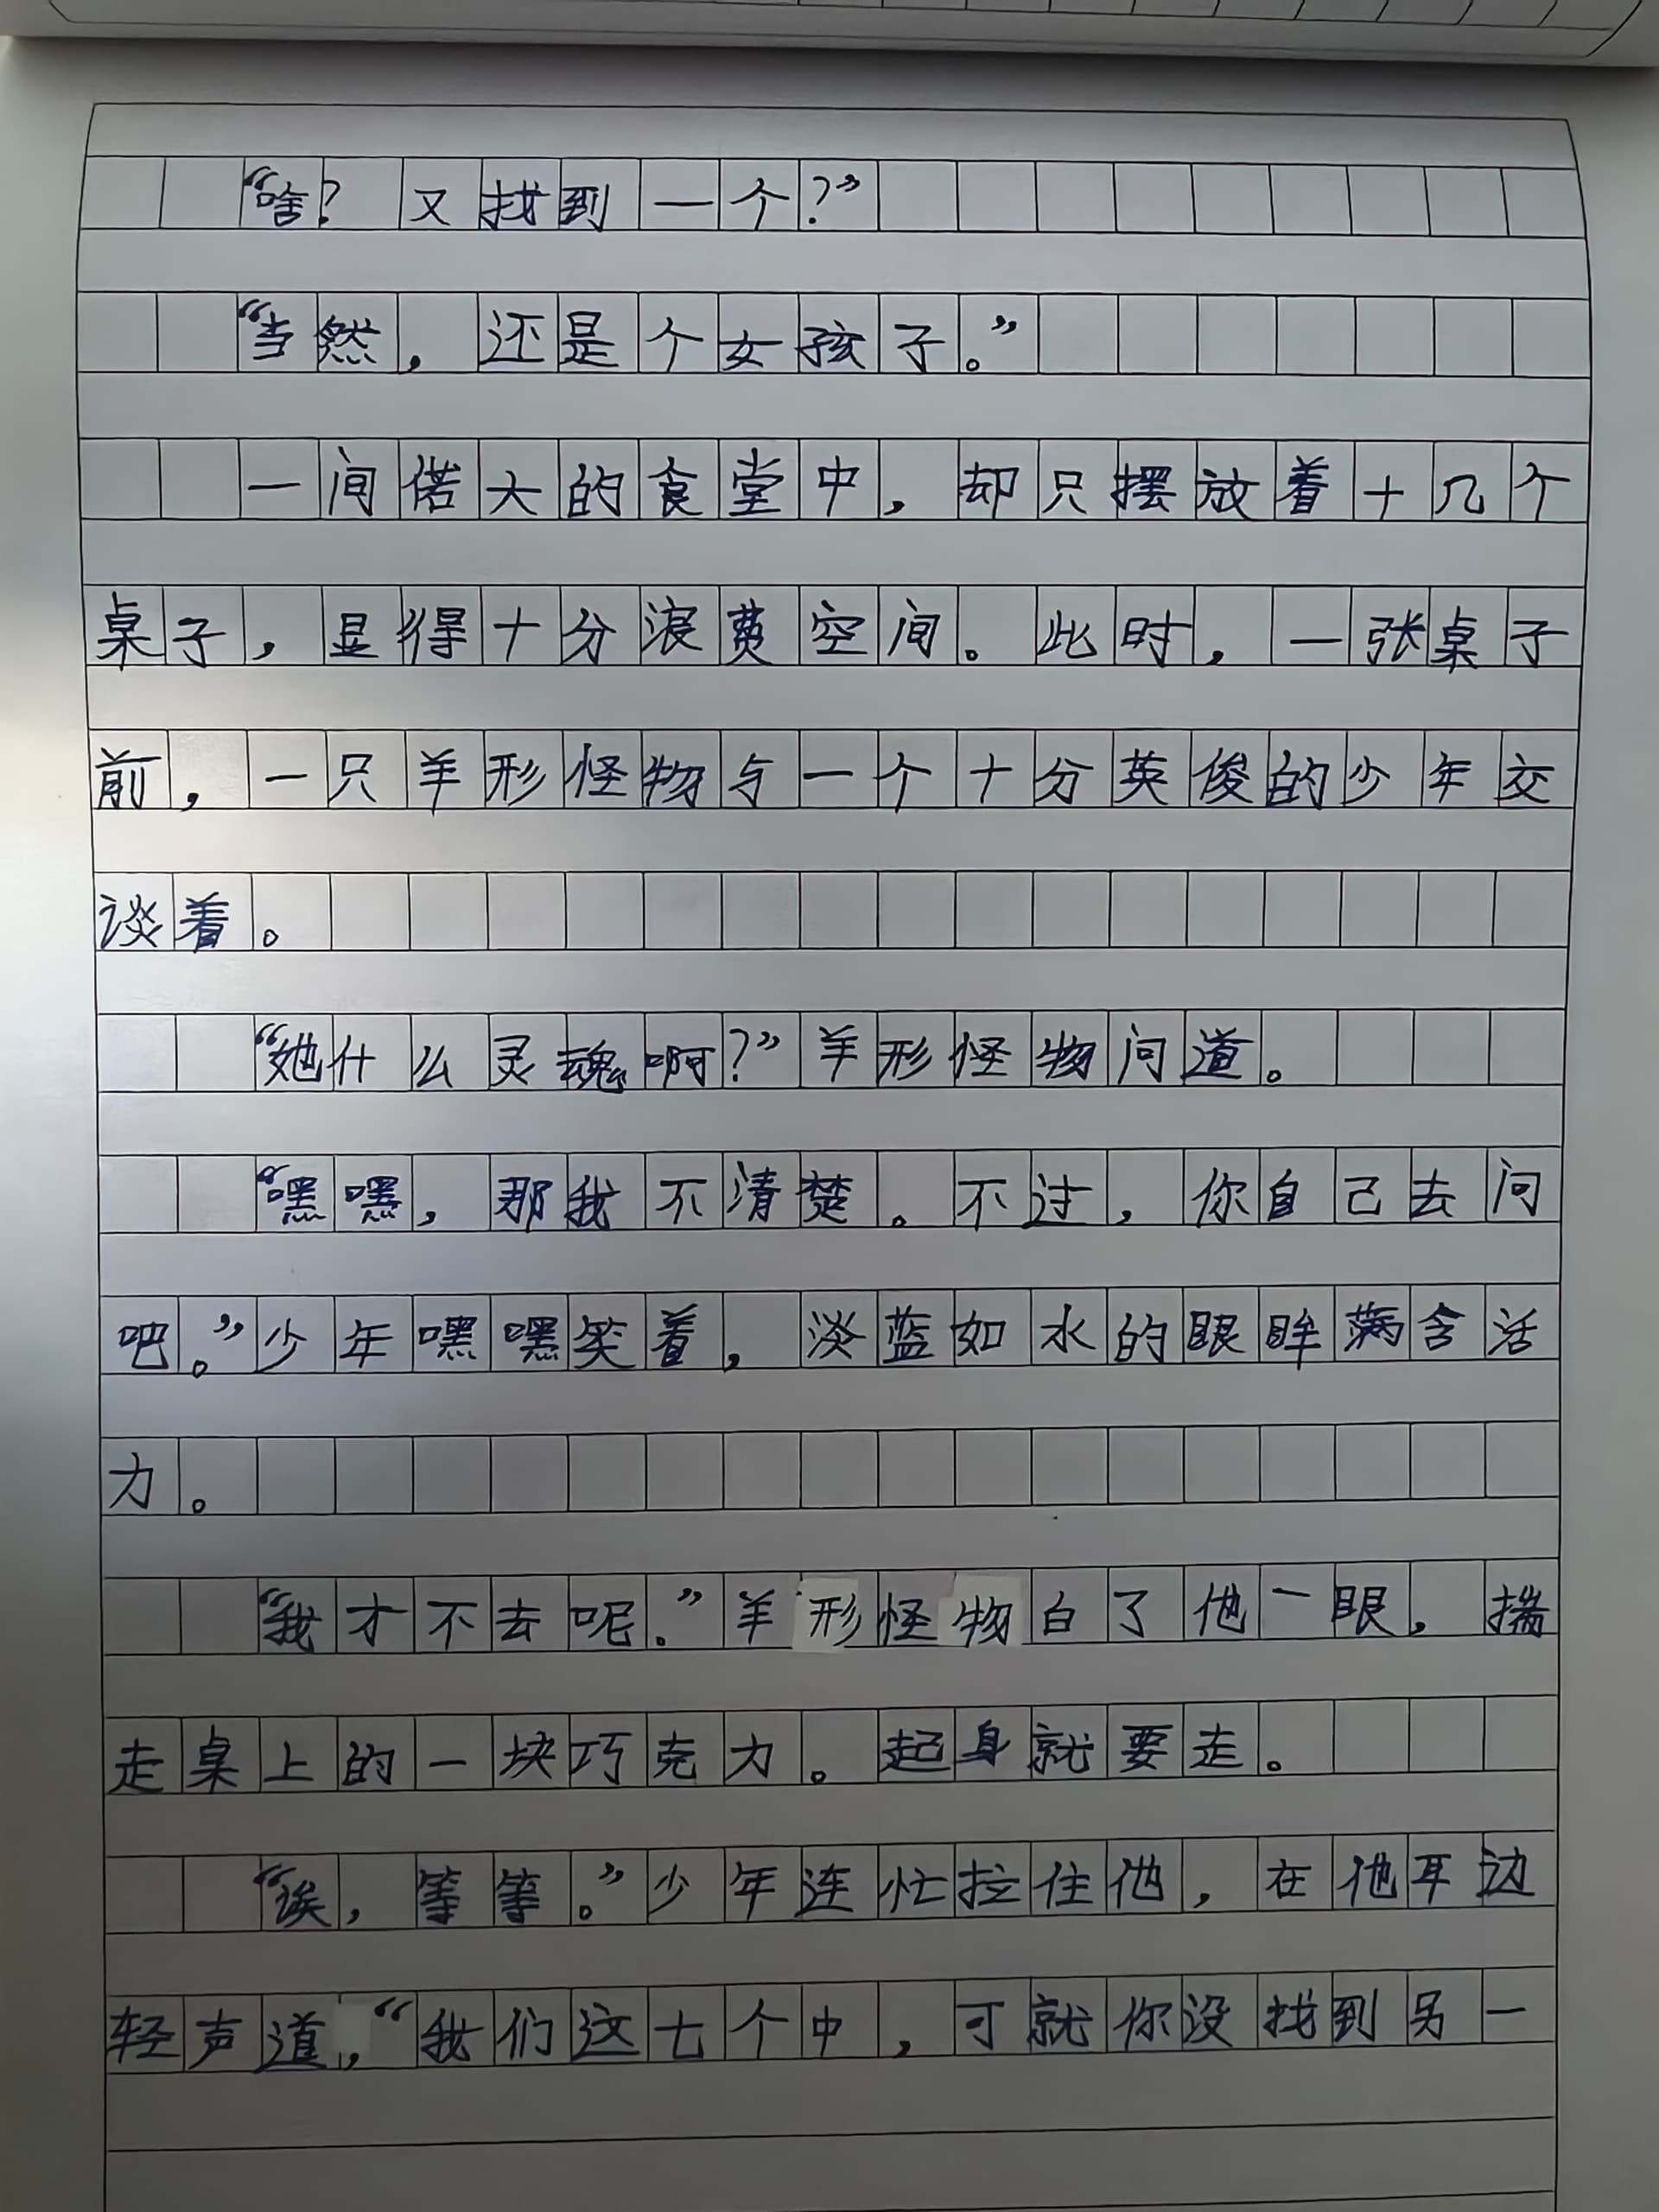 “啥？又找到一个？”
“当然，还是个女孩子。”
一间偌大的食堂中，却只摆放着十几个
桌子，显得十分浪费空间。此时，一张桌子
前，一只羊形怪物与一个十分英俊的少年交
谈着。
“她什么灵魂啊？”羊形怪物问道。
“嘿嘿，那我不清楚。不过，你自己去问
吧。”少年嘿嘿笑着，淡蓝如水的眼眸满含活
力。
“我才不去呢。”羊形怪物白了他一眼，揣
走桌上的一块巧克力。起身就要走。
“诶，等等。”少年连忙拉住他，在他耳边
轻声道，“我们这七个中，可就你没找到另一